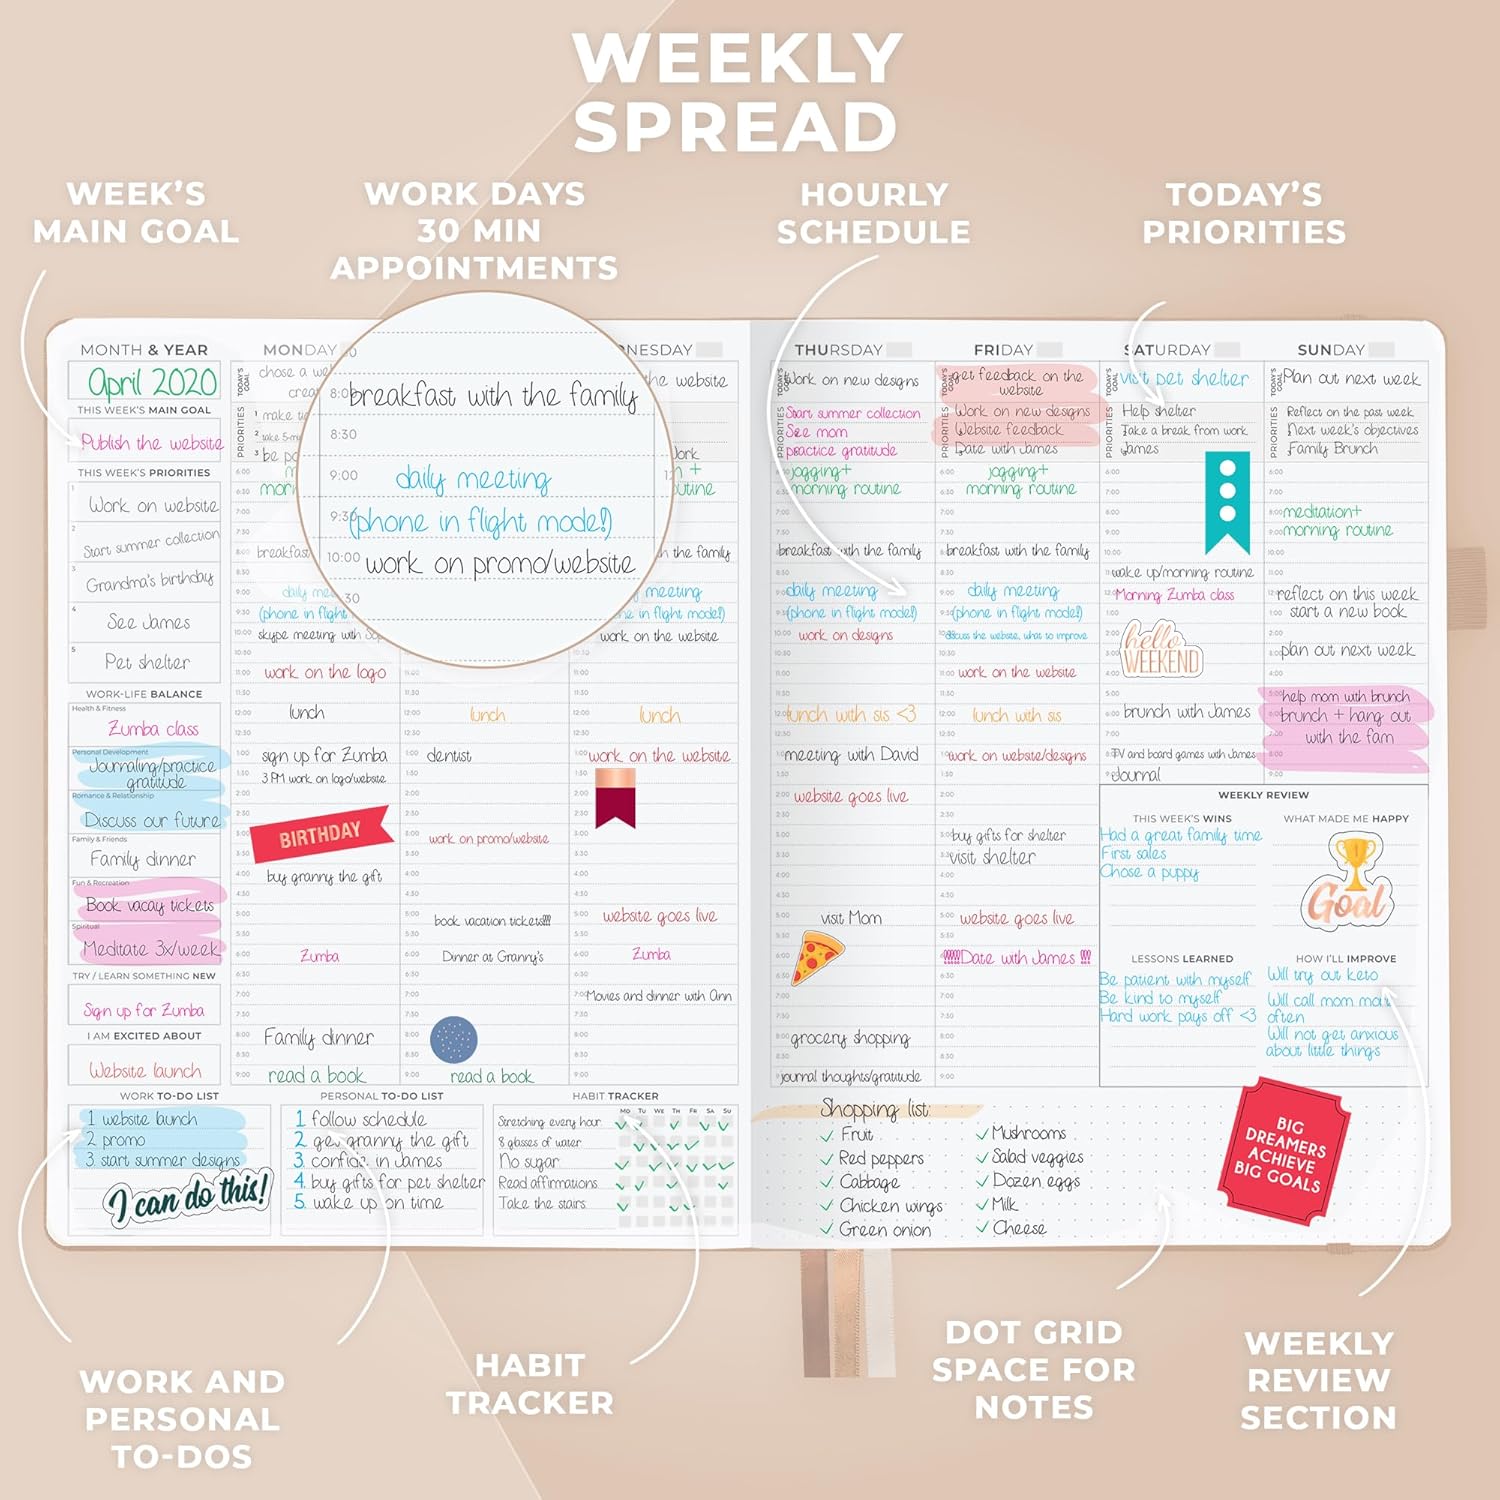 WEEKLY
SPREAD
WEEK'S
MAIN GOAL
WORK DAYS
30 MIN
APPOINTMENTS
HOURLY
SCHEDULE
TODAY'S
PRIORITIES
MONTH & YEAR
April 2020
THIS WEEK'S MAIN GOAL
Publish the website
THIS WEEK'S PRIORITIES
1
Work on website
2
Start summer collection
3
Grandma's birthday
4
See James
5
Pet shelter
WORK-LIFE BALANCE
Health & Fitness
Zumba class
Personal Development
Journaling/practice
gratitude
Romance & Relationship
Discuss our future
Family & Friends
Family dinner
Fun & Recreation
Book vacay tickets
Spiritual
Meditate 3x/week
TRY / LEARN SOMETHING NEW
Sign up for Zumba
I AM EXCITED ABOUT
Website launch
MONDAY
TODAY'S GOAL
PRIORITIES
6:00
6:30
7:00
7:30
8:00 breakfast
8:30
9:00
9:30 (phone in flight
10:00 skype meeting with
10:30
11:00 work on the logo
11:30
12:00 lunch
12:30
1:00 sign up for Zumba
1:30 3 PM work on logo/website
2:00
2:30
BIRTHDAY
3:00
3:30
4:00 buy granny the gift
4:30
5:00
5:30
6:00 Zumba
6:30
7:00
7:30
8:00 Family dinner
8:30
9:00 read a book
8:00 breakfast with the family
8:30
9:00 daily meeting
9:30 (phone in flight mode!)
10:00 work on promo/website
30
11:00
11:30
12:00 lunch
12:30
1:00 dentist
1:30
2:00
2:30
3:00 work on promo/website
3:30
4:00
4:30
5:00 book vacation tickets!!!!
5:30
6:00 Dinner at Granny's
6:30
7:00
7:30
8:00
8:30
9:00 read a book
NESDAY
he website
the family
meeting
in flight mode!)
work on the website
10:30
11:00
11:30
12:00 lunch
12:30
1:00 work on the website
1:30
2:00
2:30
3:00
3:30
4:00
4:30
5:00 website goes live
5:30
6:00 Zumba
6:30
7:00 Movies and dinner with Ann
7:30
8:00
8:30
9:00
THURSDAY
TODAY'S GOAL
Work on new designs
PRIORITIES
Start summer collection
See mom
practice gratitude
jogging+
morning routine
breakfast with the family
daily meeting
(phone in flight mode!)
work on designs
lunch with sis <3
meeting with David
website goes live
visit Mom
grocery shopping
journal thoughts/gratitude
FRIDAY
TODAY'S GOAL
get feedback on the
website
PRIORITIES
Work on new designs
Website feedback
Date with James
jogging+
morning routine
breakfast with the family
daily meeting
(phone in flight mode!)
discuss the website, what to improve
work on the website
lunch with sis
work on website/designs
buy gifts for shelter
visit shelter
website goes live
!!!!!!Date with James !!!!
SATURDAY
TODAY'S GOAL
visit pet shelter
PRIORITIES
Help shelter
Take a break from work
James
wake up/morning routine
Morning Zumba class
hello
WEEKEND
brunch with James
TV and board games with James
Journal
SUNDAY
TODAY'S GOAL
Plan out next week
PRIORITIES
Reflect on the past week
Next week's objectives
Family Brunch
meditation+
morning routine
reflect on this week
start a new book
plan out next week
help mom with brunch
brunch + hang out
with the fam
WEEKLY REVIEW
THIS WEEK'S WINS
Had a great family time
First sales
Chose a puppy
WHAT MADE ME HAPPY
Goal
LESSONS LEARNED
Be patient with myself
Be kind to myself
Hard work pays off <3
HOW I'LL IMPROVE
Will try out keto
Will call mom more
often
Will not get anxious
about little things
WORK TO-DO LIST
1 website launch
2 promo
3. start summer designs
I can do this!
PERSONAL TO-DO LIST
1. follow schedule
2 get granny the gift
3. confide in James
4. buy gifts for pet shelter
5. wake up on time
HABIT TRACKER
MO TU WE TH FR SA SU
Stretching every hour
8 glasses of water
No sugar
Read affirmations
Take the stairs
Shopping list:
Fruit
Red peppers
Cabbage
Chicken wings
Green onion
Mushrooms
Salad veggies
Dozen eggs
Milk
Cheese
BIG
DREAMERS
ACHIEVE
BIG GOALS
WORK AND
PERSONAL
TO-DOS
HABIT
TRACKER
DOT GRID
SPACE FOR
NOTES
WEEKLY
REVIEW
SECTION